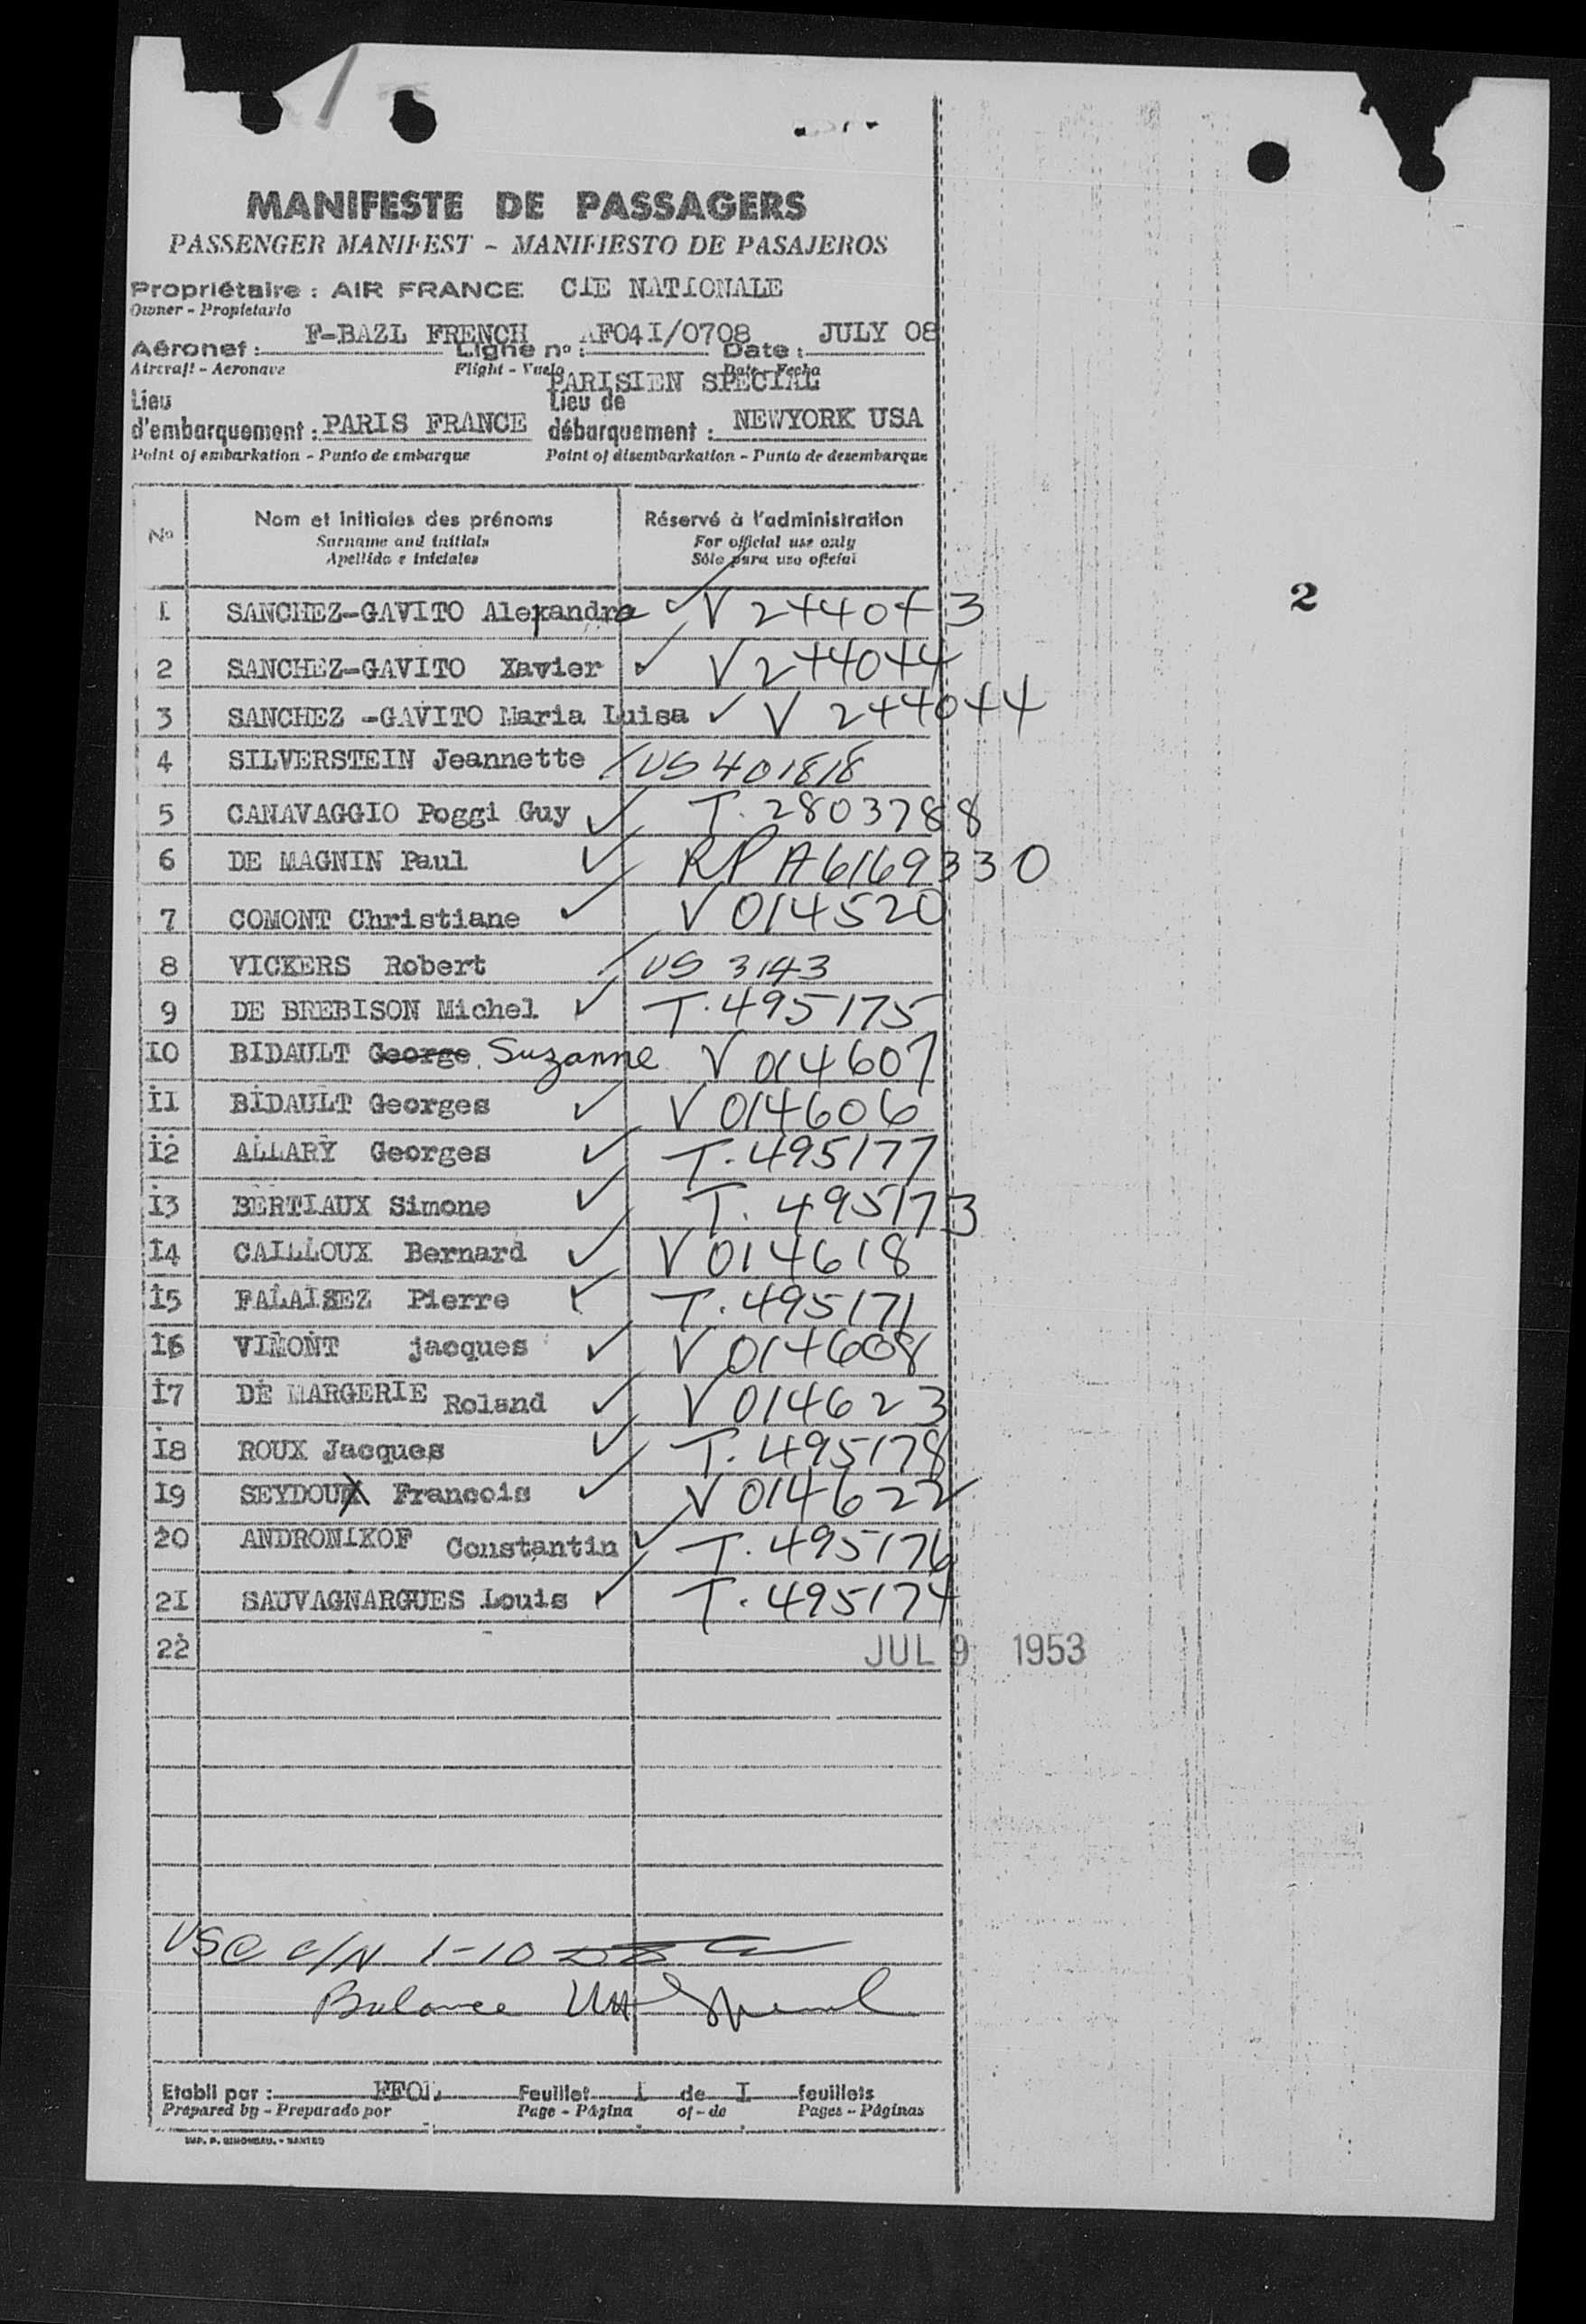 MANIFESTE DE PASSAGERS
PASSENGER MANIFEST - MANIFIESTO DE PASAJEROS
Propriétaire : AIR FRANCE CIE NATIONALE
Owner - Propietario
Aéronef : F-BAZL FRENCH Ligne nº : AF04I/0708 Date : JULY 08
Aircraft - Aeronave Flight - Vuelo Date - Fecha
PARISIEN SPECIAL
Lieu d'embarquement : PARIS FRANCE Lieu de débarquement : NEWYORK USA
Point of embarkation - Punto de embarque Point of disembarkation - Punto de desembarque
Nº Nom et initiales des prénoms Réservé à l'administration
Surname and initials For official use only
Apellido e iniciales Sólo para uso oficial
2
I SANCHEZ-GAVITO Alexandra ✓ V 244043
2 SANCHEZ-GAVITO Xavier ✓ V 244044
3 SANCHEZ -GAVITO Maria Luisa ✓ V 244044
4 SILVERSTEIN Jeannette / US 401818
5 CANAVAGGIO Poggi Guy ✓ T. 2803788
6 DE MAGNIN Paul ✓ RP A6169330
7 COMONT Christiane ✓ V 014520
8 VICKERS Robert / US 3143
9 DE BREBISON Michel ✓ T. 495175
IO BIDAULT George Suzanne V 014607
II BIDAULT Georges ✓ V 014606
I2 ALLARY Georges ✓ T. 495177
I3 BERTIAUX Simone ✓ T. 495173
I4 CAILLOUX Bernard ✓ V 014618
I5 FALAISEZ Pierre ✓ T. 495171
I6 VIMONT jacques ✓ V 014608
I7 DE MARGERIE Roland ✓ V 014623
I8 ROUX Jacques ✓ T. 495178
I9 SEYDOUX Francois ✓ V 014622
20 ANDRONIKOF Constantin ✓ T. 495176
2I SAUVAGNARGUES Louis ✓ T. 495174
22
JUL 9 1953
USC c/N 1-10
Balance
Etabli par : Feuillet I de I feuillets
Prepared by - Preparado por Page - Página of - de Pages - Páginas